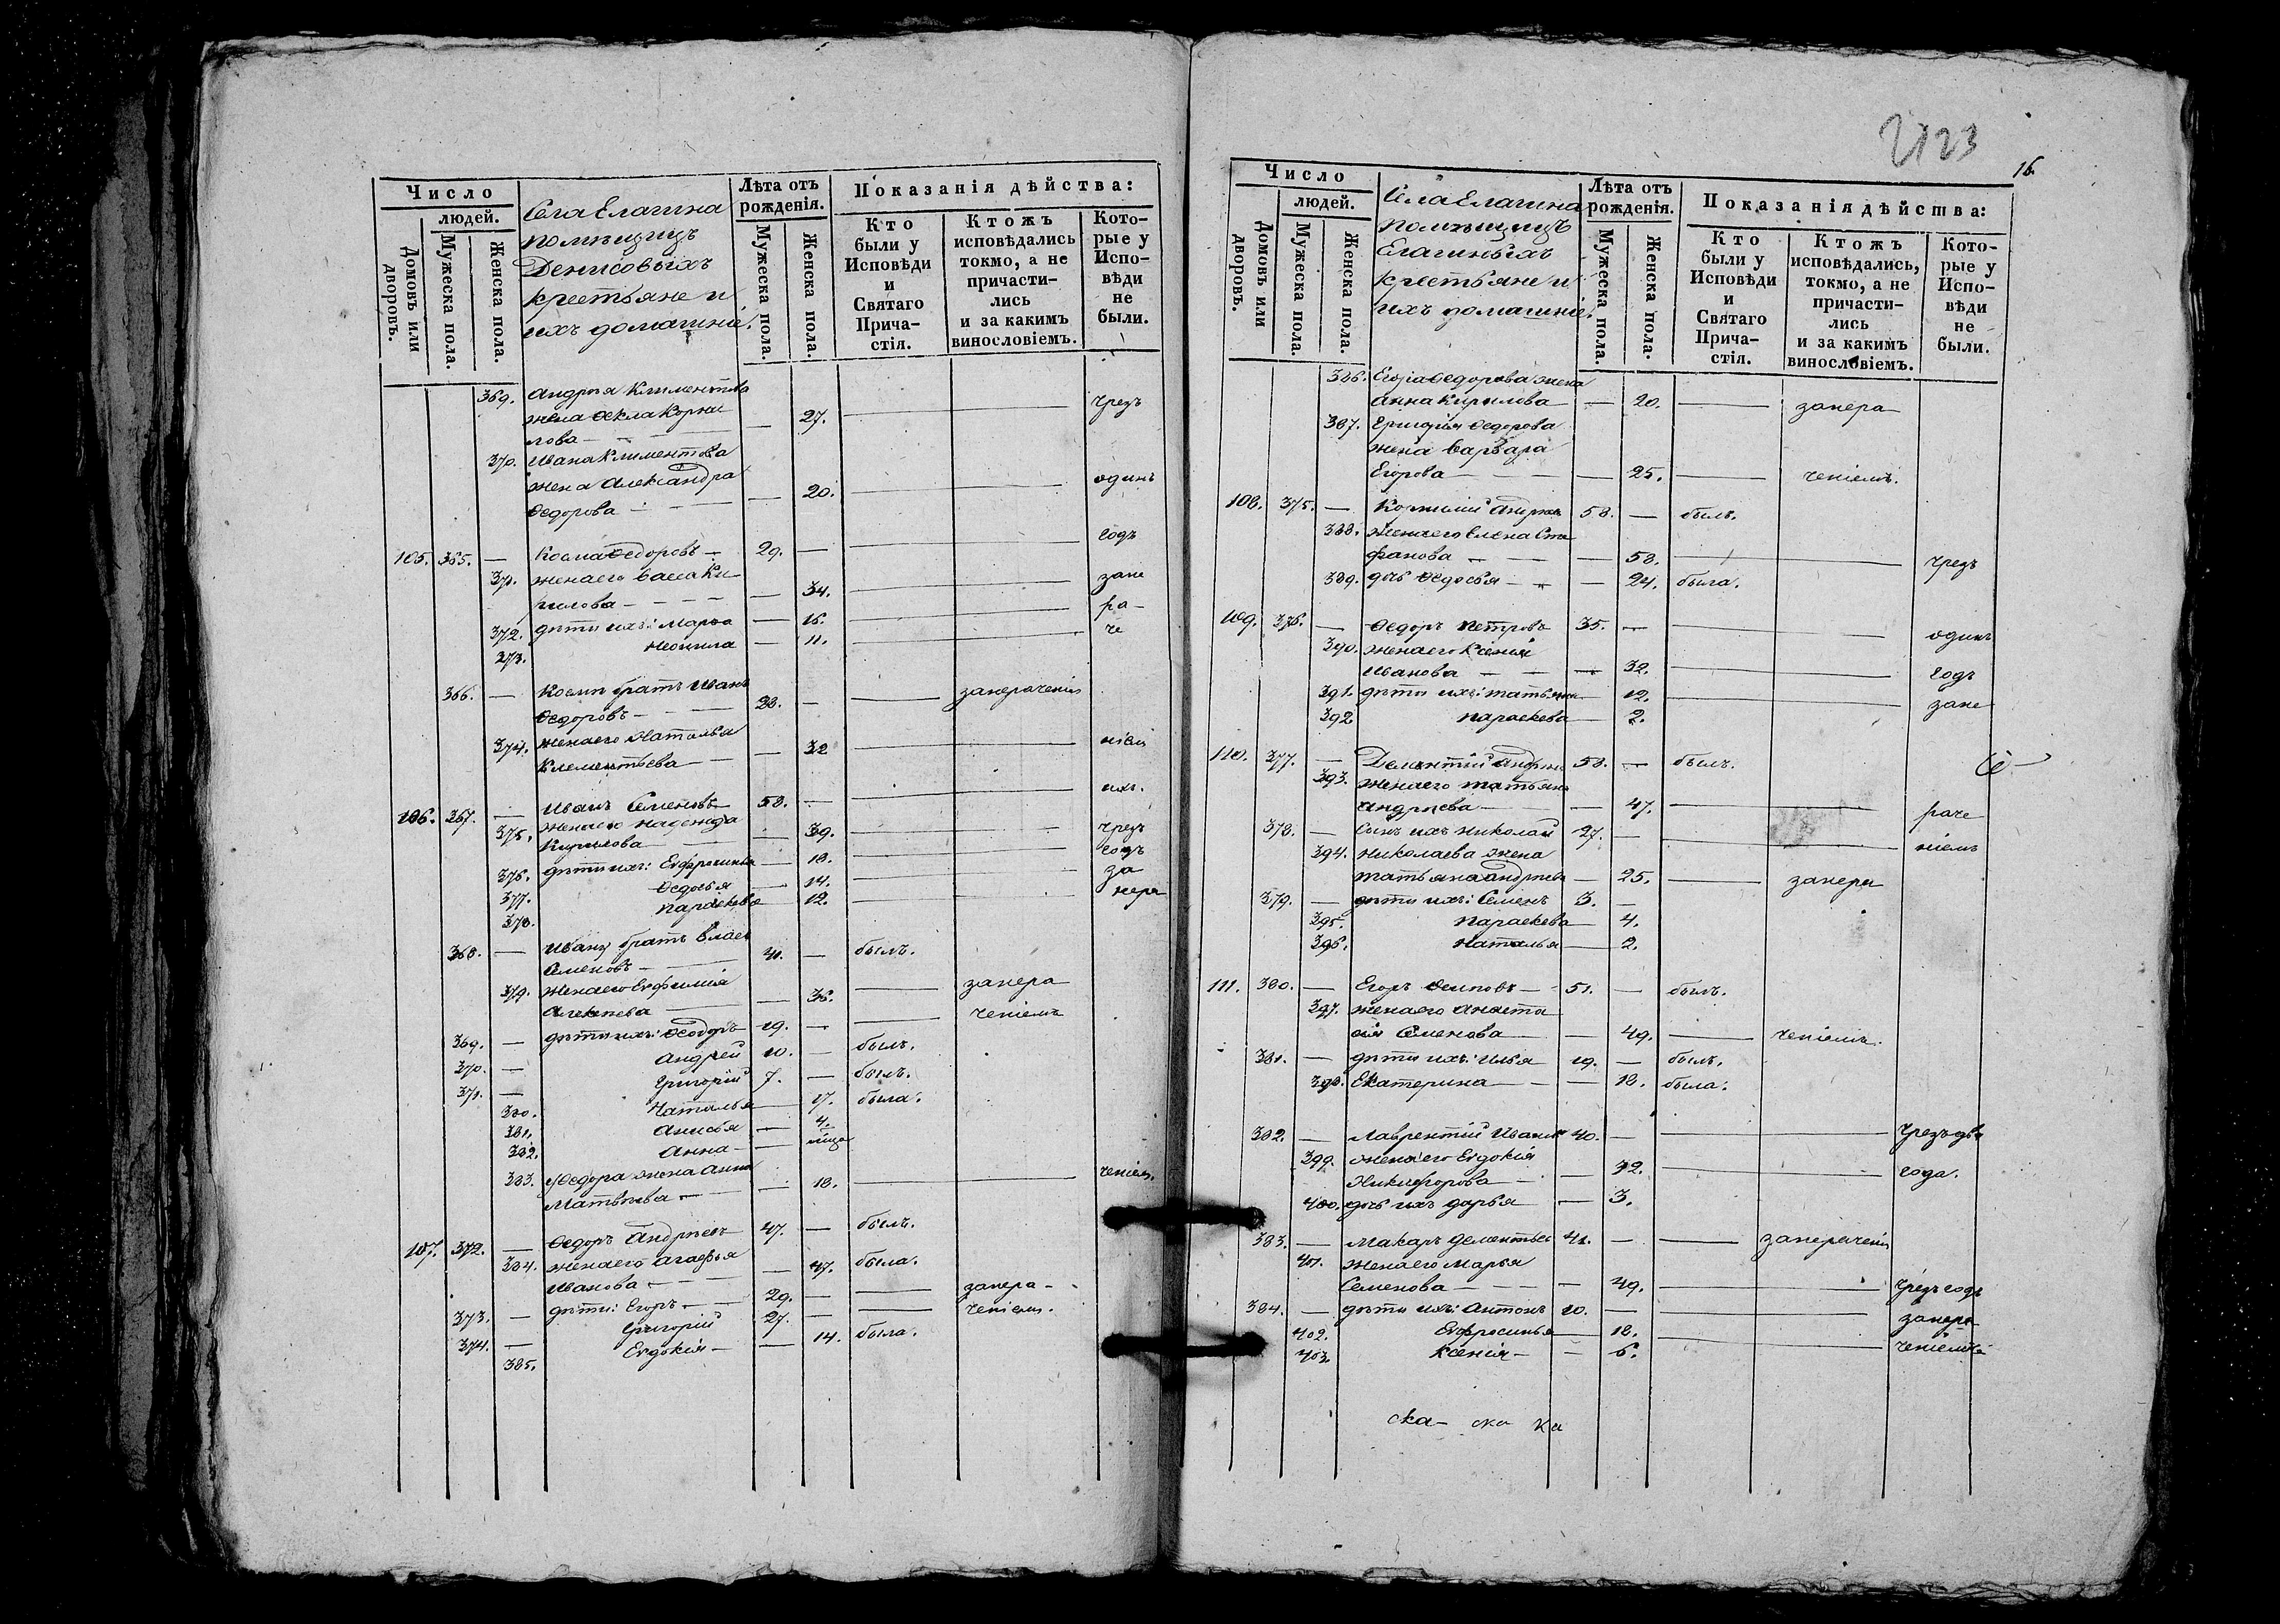 Число
людей.
Домовъ или дворовъ.
Мужеска пола.
Женска пола.
Села Елагина
помѣщицъ
Денисовыхъ
крестьяне и
ихъ домашніе.
Лѣта отъ рожденія.
Мужеска пола.
Женска пола.
Показанія дѣйства:
Кто были у Исповѣди и Святаго Прича-стія.
Ктожъ исповѣдались токмо, а не причасти-лись и за какимъ винословіемъ.
Кото-рые у Испо-вѣди не были.
369. Андрея Климентова
жена Ѳекла Корни
лова — — 27. — чрезъ
370. Ивана Климентова
жена Александра
Ѳедорова — — 20. — одинъ
105. 365. — Косма Ѳедоровъ — 29. — годъ
371. жена его Васса Ки
рилова — — 34. — зане
372. дѣти ихъ: Марѳа — 16. — ра-
373. Неонила — 11. — че
366. — Космы братъ Иванъ
Ѳедоровъ — 28. — занерачениѣ
374. жена его Наталья
Клементьева — — 32 — ніем
106. 367. — Иванъ Семеновъ 58. — ихъ.
375. жена его Надежда
Кирилова — — 39. — чрезъ
376. дѣти ихъ: Евфросинья — 18. — годъ
377. Ѳедосья — 14. — за
378. Параскева — 12. — нера
368. — Иванъ братъ Власъ
Семеновъ — 41. — былъ.
379. жена его Евфимія
Алексѣева — — 36. — занера
369. — дѣти ихъ: Ѳеодоръ 19. — ченіемъ
370. — Андрей 10. — былъ.
371. — Григорій 7. — былъ.
380. Наталья — 17. была.
381. Анисья — 4.
382. Анна —
383. Ѳедора жена Анна
Матвѣева — — 18. — ченіем.
107. 372. — Ѳедоръ Андреевъ 47. — былъ.
384. жена его Агаѳья
Иванова — — 47. была.
373. — дѣти: Егоръ — 29. — занера-
374. — Григорій 27. — ченіемъ.
385. Евдокія — — 14. была.
2123
16.
Число
людей.
Домовъ или дворовъ.
Мужеска пола.
Женска пола.
Села Елагина
помѣщицъ
Елагиныхъ
крестьяне и
ихъ домашніе.
Лѣта отъ рожденія.
Мужеска пола.
Женска пола.
Показанія дѣйства:
Кто были у Исповѣди и Святаго Прича-стія.
Ктожъ исповѣдались, токмо, а не причасти-лись и за какимъ винословіемъ.
Кото-рые у Испо-вѣди не были.
386. Егора Ѳедорова жена
Анна Кирилова — 20. — занера
387. Григорія Ѳедорова
жена Варвара
Егорова — — 25. — ченіемъ.
108. 375. — Корнилій Андреевъ 58. — былъ.
388. жена его Елена Сте
фанова — — 58. — чрезъ
389. дочь Ѳедосья — — 24. была.
109. 376. — Ѳедоръ Петровъ 35. — одинъ
390. жена его Ксенія
Иванова — — 32. — годъ
391. дѣти ихъ: Татьяна — 12. — зане
392 Параскева — 2.
110. 377. — Дементій Андреевъ 58. — былъ.
393. жена его Татьяна
Андреева — — 47. — раче
378. — сынъ ихъ Николай 27. — ніемъ
394. Николаева жена
Татьяна Андреева — 25. — занера
379. — дѣти ихъ: Семенъ 3. —
395. Параскева — 4.
396. Наталья — 2.
111. 380. — Егоръ Осиповъ — 51. — былъ.
397. жена его Анаста
сія Семенова — 49. — ченіемъ.
381. — дѣти ихъ: Илья 19. — былъ.
398. Екатерина — — 18. была.
382. — Лаврентій Ивановъ 40. — чрезъ два
399. жена его Евдокія
Никифорова — — 32. — года.
400. дочь ихъ Дарья — 3.
383. — Макаръ Дементьевъ 41. — занераченіе
401. жена его Марья
Семенова — — 49. — чрезъ годъ
384. — дѣти ихъ: Антонъ 10. — занера
402. Евфросинья — 18. — ченіемъ
403. Ксенія — — 6.
ска- ска ка